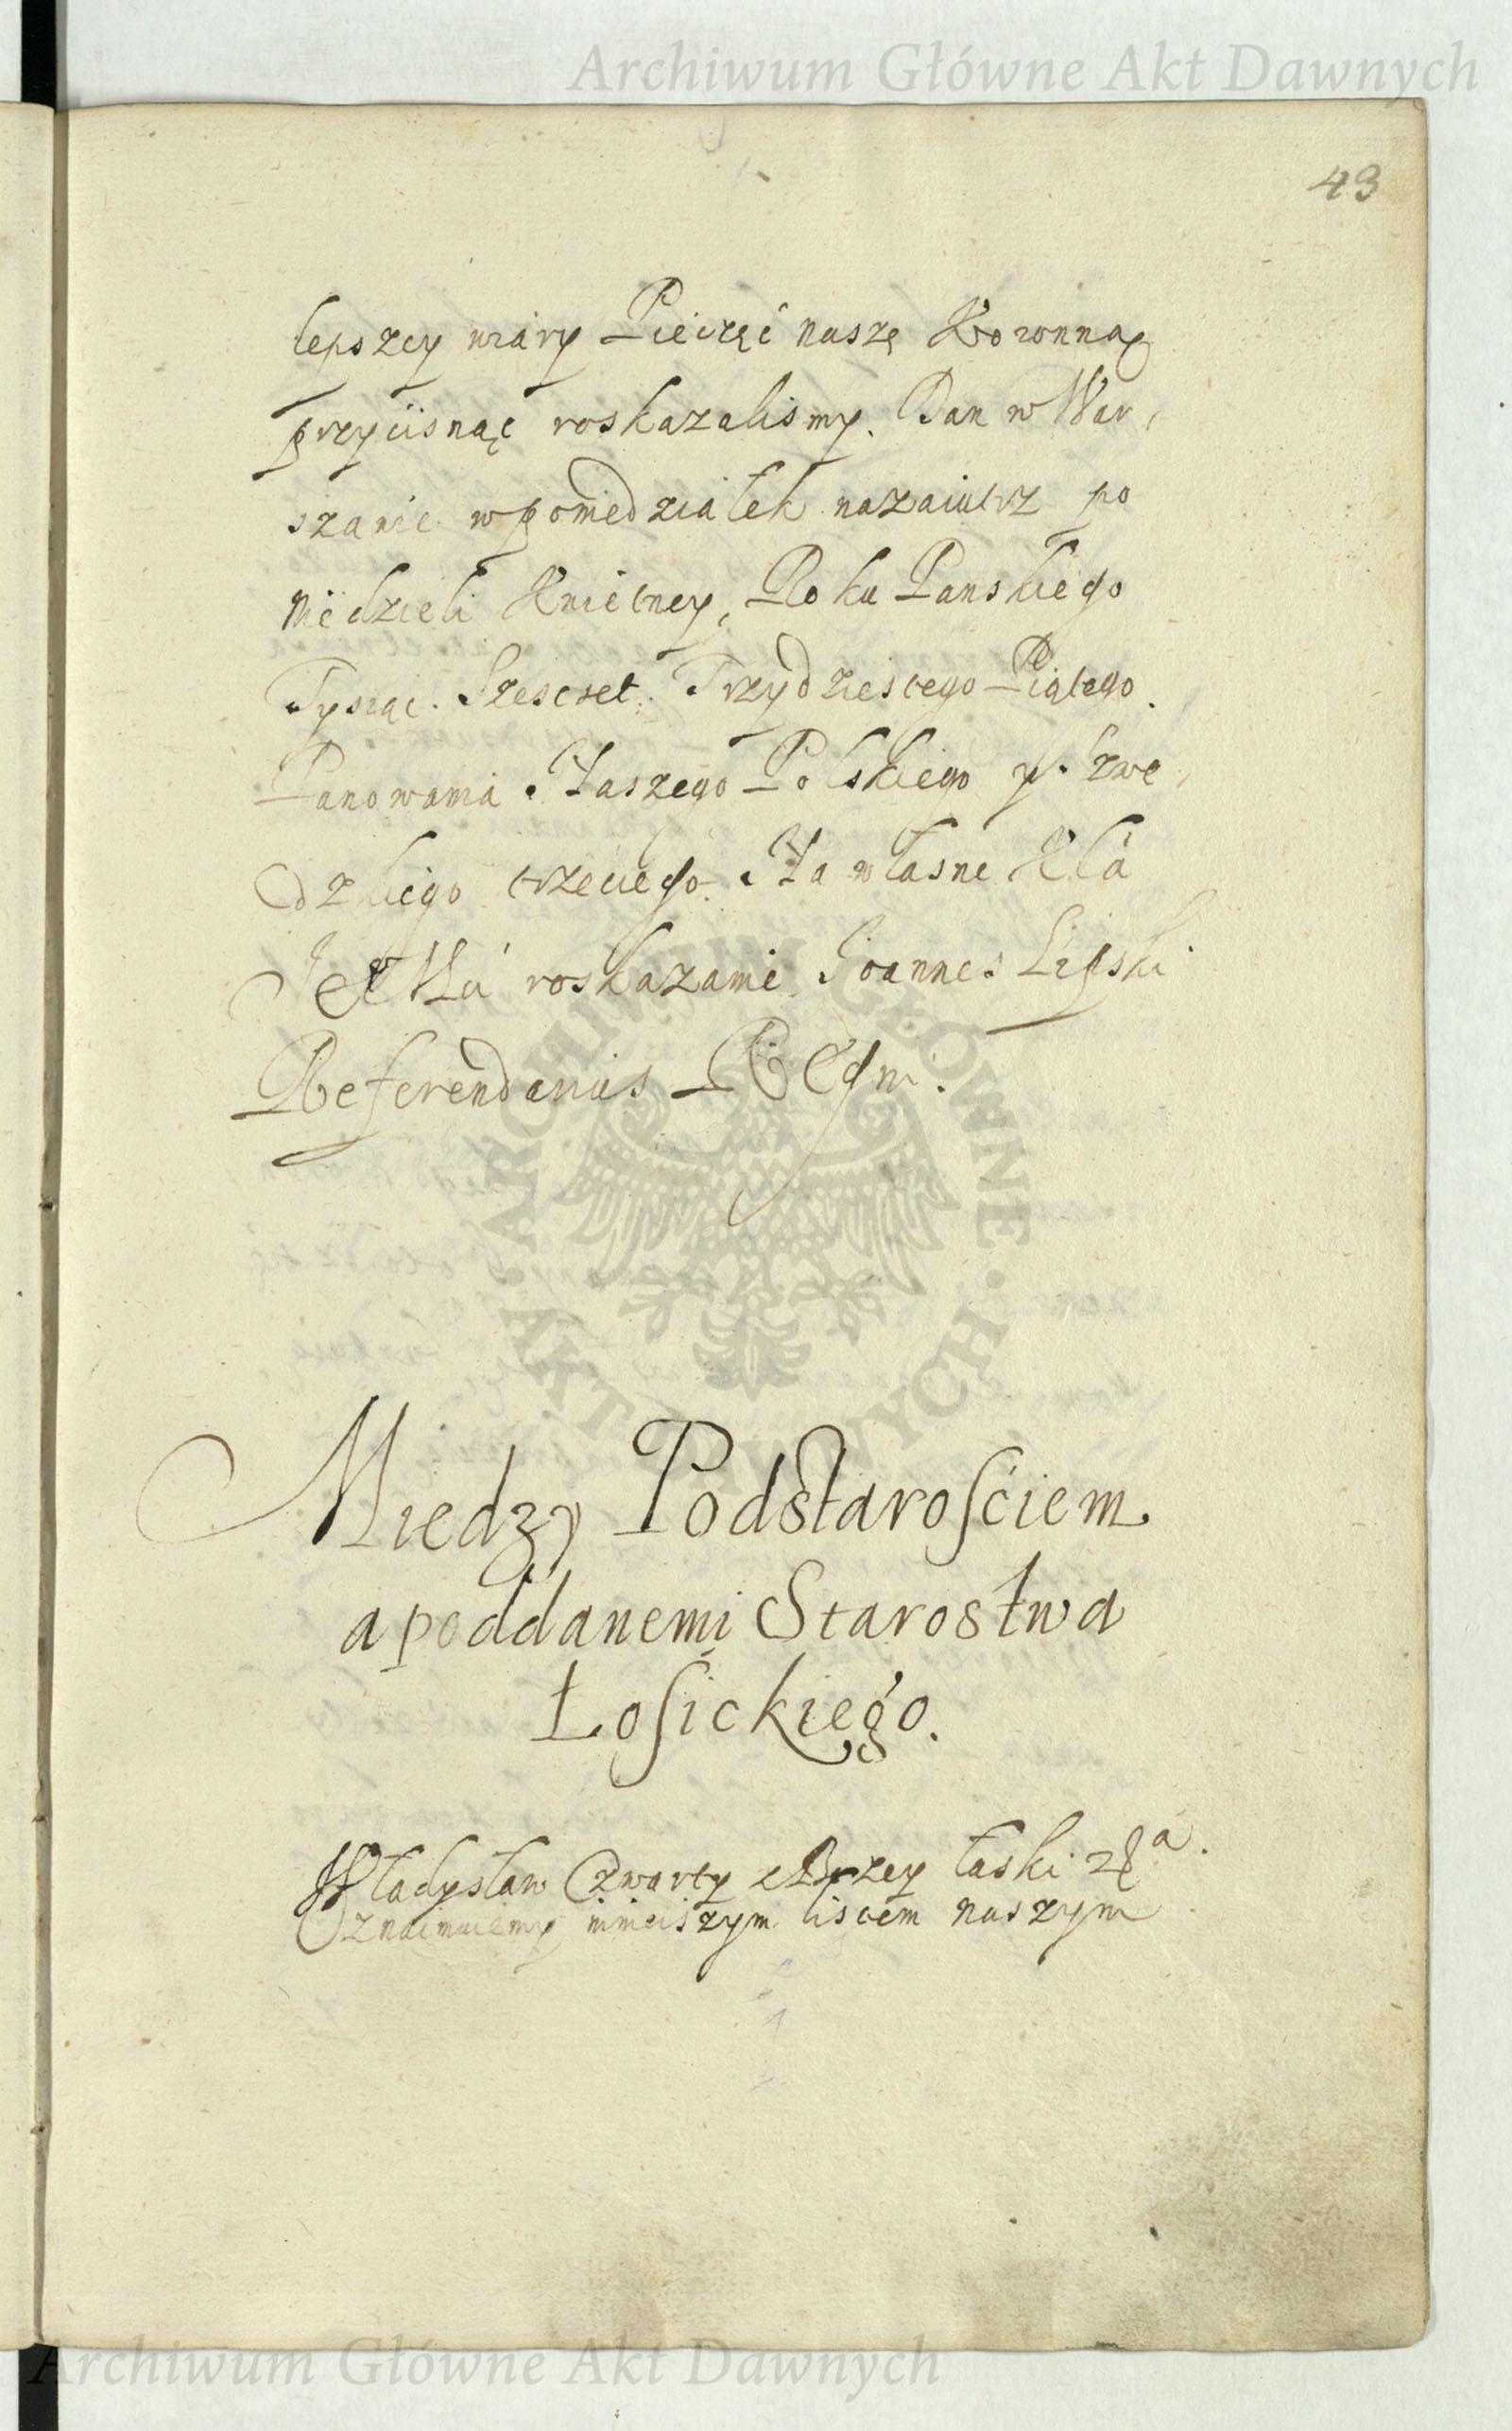 Archiwum Główne Akt Dawnych
43
lepszey wiáry Pieczęć naszę Koronną
przycisnąć roskazalismy. Dan w War,
szawie w poniedziałek nazaiutrz po
Niedzieli Kwietney, Roku Panskiego
Tysiąc. Szescset. Trzydziestego Piątego.
Panowania Naszego Polskiego y. Szwe,
dzkiego trzeciego. Na własne Kła
JeKMci roskazanie Joannes Lipski
Referendarius Regni.
ARCHIWUM GŁÓWNE · AKT DAWNYCH ·
Miedzy Podstarosciem
a poddanemi Starostwa
Łosickiego.
Władysław Czwarty z Bozey łaski &a.
Oznaimuiemy ninieiszym listem naszym
Archiwum Główne Akt Dawnych